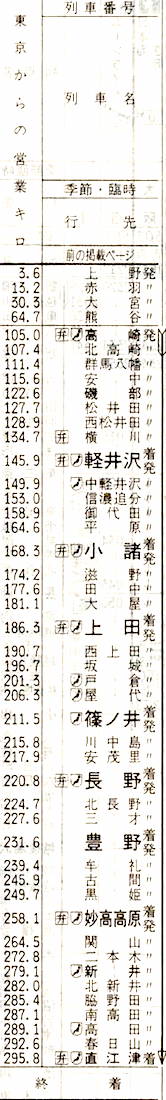 列車番号
東京からの営業キロ
列車名
季節・臨時
行先
前の掲載ページ
3.6 上野発
13.2 赤羽〃
30.3 大宮〃
64.7 熊谷〃
105.0 弁 高崎発
107.4 北高崎〃
111.4 群馬八幡〃
115.6 安中〃
122.6 磯部〃
127.7 松井田〃
128.9 西松井田〃
134.7 弁 横川〃
145.9 弁 軽井沢着発
149.9 中軽井沢〃
153.0 信濃追分〃
158.9 御代田〃
164.6 平原〃
168.3 弁 小諸着発
174.2 滋野〃
177.6 田中〃
181.1 大屋〃
186.3 弁 上田着発
190.7 西上田〃
196.7 坂城〃
201.3 戸倉〃
206.3 屋代〃
211.5 篠ノ井着発
215.8 川中島〃
217.9 安茂里〃
220.8 弁 長野着発
224.7 北長野〃
227.6 三才〃
231.6 豊野着発
239.4 牟礼〃
245.9 古間〃
249.7 黒姫〃
258.1 弁 妙高高原着発
264.5 関山〃
272.8 二本木〃
279.1 新井〃
282.0 北新井〃
285.4 脇野田〃
287.1 南高田〃
289.1 高田〃
292.6 春日山〃
295.8 弁 直江津着
終着